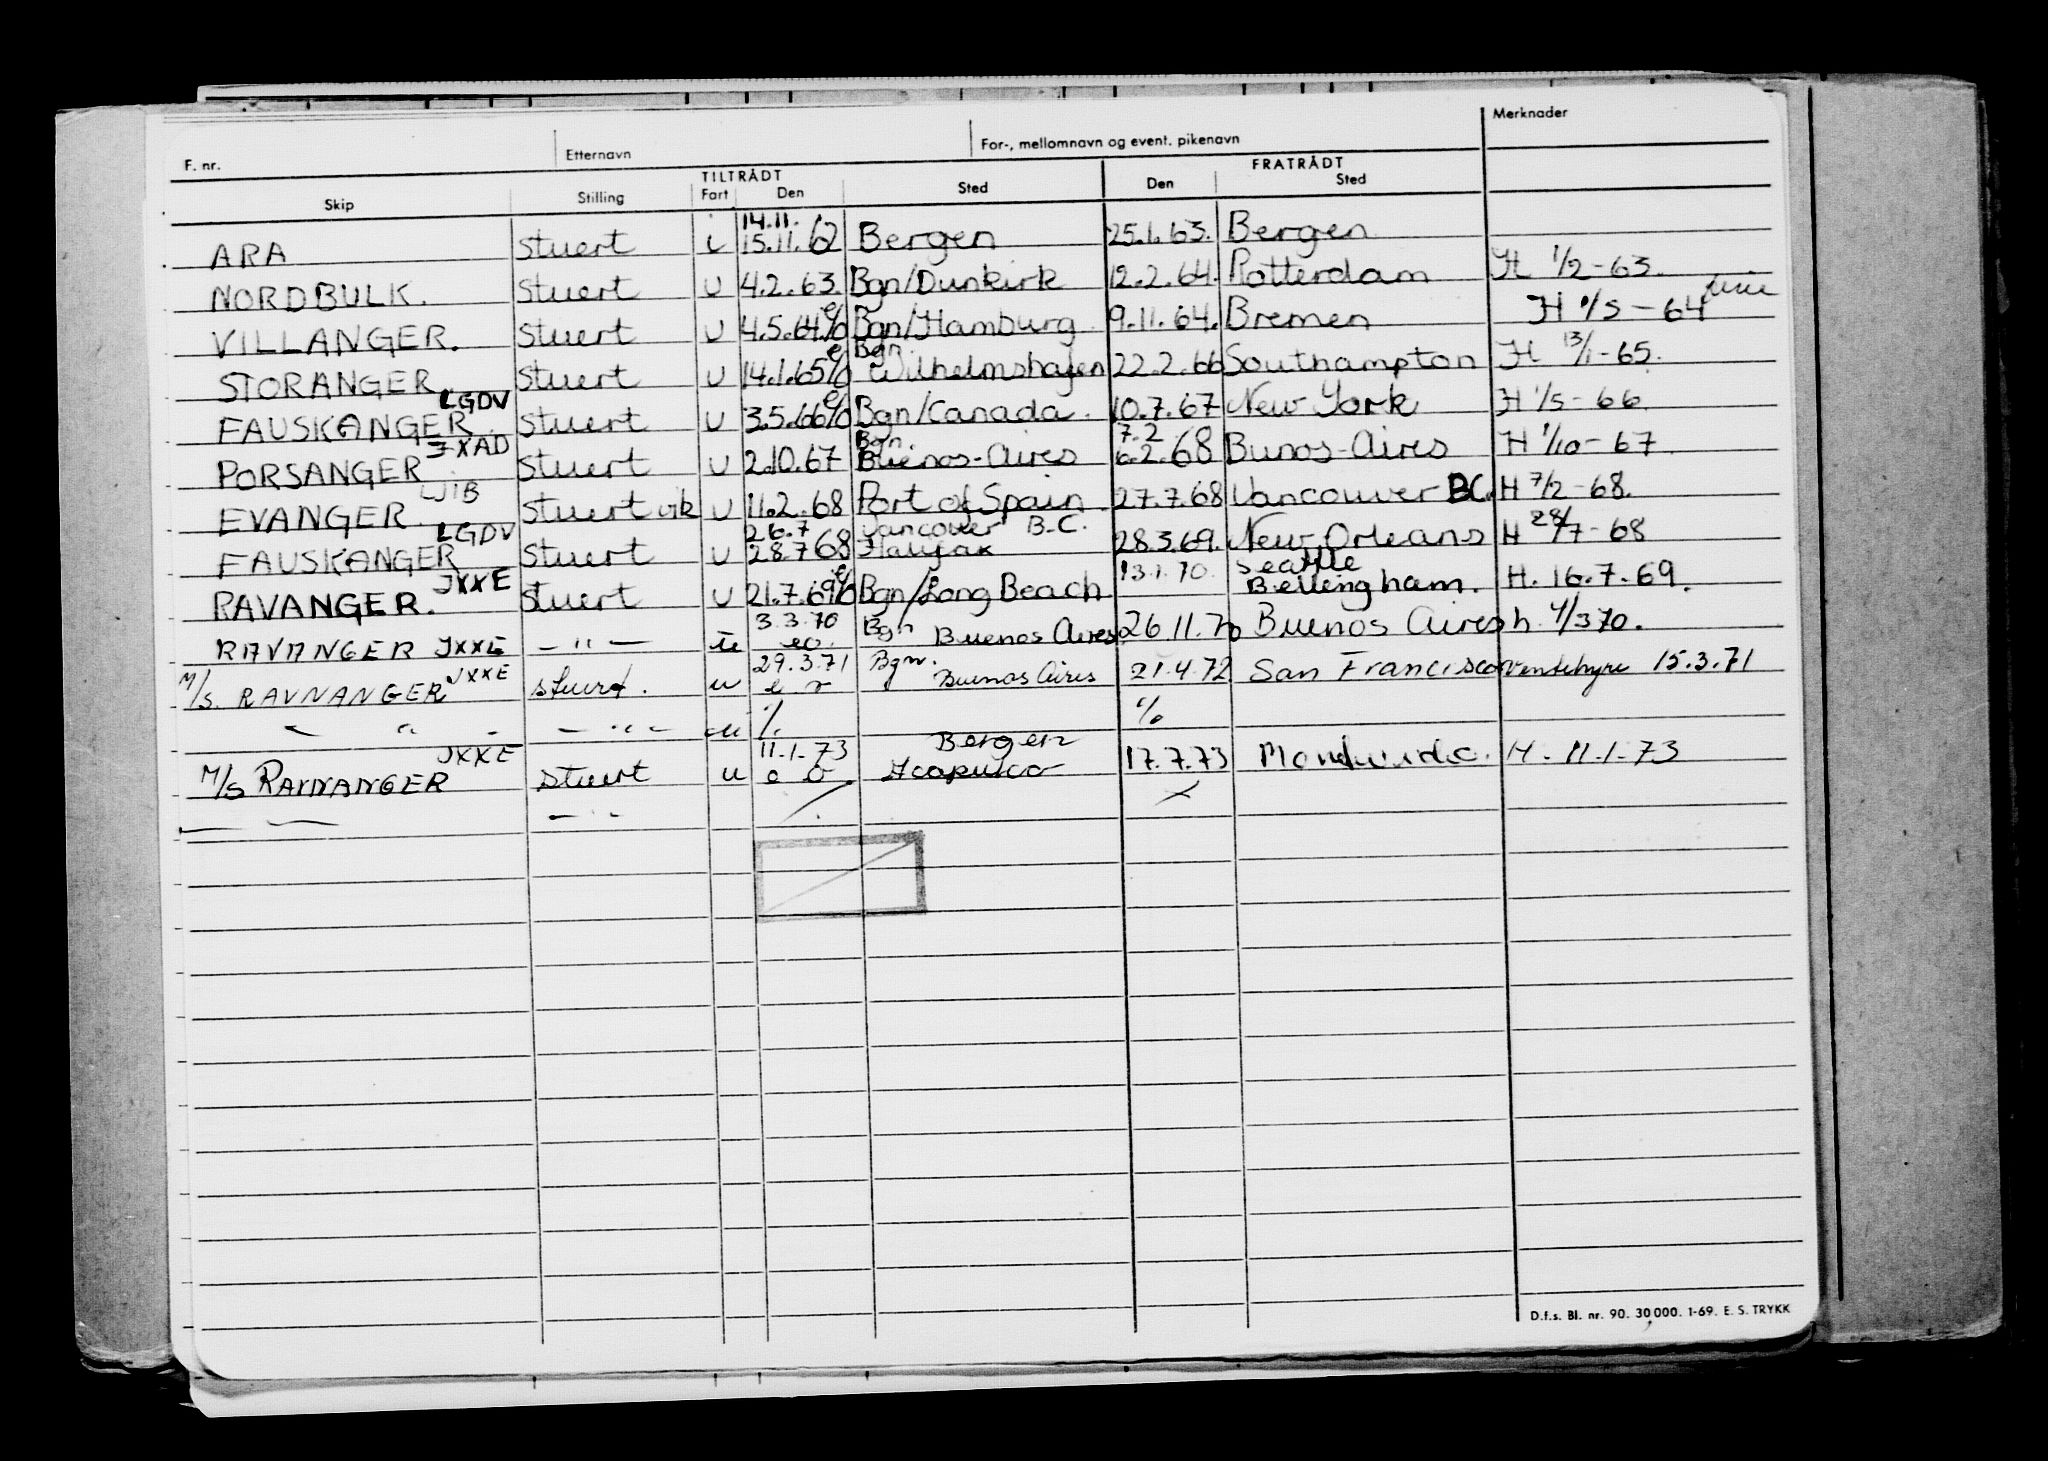 Merknader
F. nr. Etternavn For-, mellomnavn og event. pikenavn
TILTRÅDT FRATRÅDT
Skip Stilling Fart Den Sted Den Sted
14.11.
ARA stuert i 15.11.62 Bergen 25.1.63. Bergen
NORDBULK. stuert u 4.2.63. Bgn/Dunkirk 12.2.64. Rotterdam H 1/2-63.
VILLANGER. stuert u 4.5.64 e/o Bgn/Hamburg 9.11.64. Bremen H 1/5-64
Bgn.
STORANGER stuert u 14.1.65 e/o Wilhelmshafen 22.2.66 Southampton H 13/1-65.
LGDV
FAUSKANGER stuert u 3.5.66 e/o Bgn/Canada. 10.7.67 New York H 1/5-66
JXAD Bgn. 7.2
PORSANGER stuert u 2.10.67 Buenos-Aires 6.2.68 Bunos-Aires H 1/10-67
LJIB
EVANGER stuert vik u 11.2.68 Port of Spain 27.7.68 Vancouver BC. H 7/2-68.
LGDV 26.7 Vancouver B.C.
FAUSKANGER stuert u 28.7 68 Halifax 28.3.69. New Orleans H 28/7-68
JXXE 13.1.70. Seattle
RAVANGER. stuert u 21.7.69 e/o Bgn/Long Beach Bellingham. H. 16.7.69.
3.3.70 Bgn
RAVANGER JXXE - " - u eo. Buenos Aires 26.11.70 Buenos Aires h. 4/3 70.
JXXE 29.3.71 Bgn.
M/S. RAVNANGER stuert. u e r Buenos Aires 21.4.72 San Francisco ventehyre 15.3.71
" " - - " - u % %
JXXE 11.1.73 Bergen
M/S RAVNANGER stuert u e o Acapulco 17.7.73 H. 11.1.73
D.f.s. Bl. nr. 90. 30 000. 1-69. E. S. TRYKK